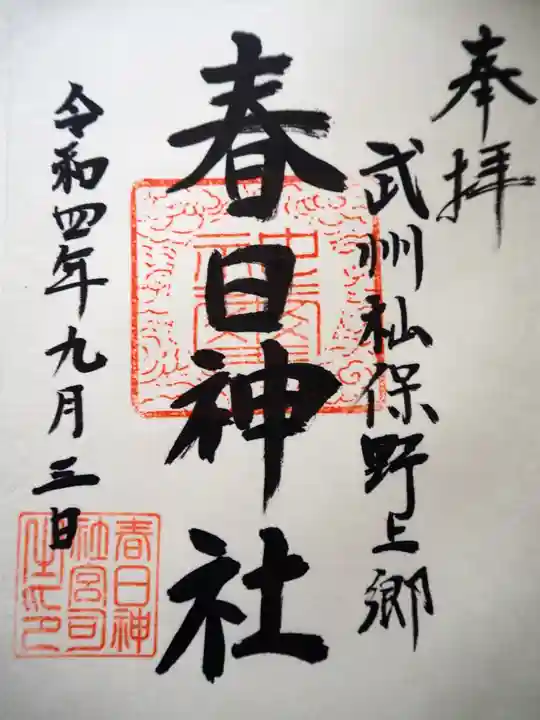 奉拝
武州杣保野上郷
春日神社
令和四年九月三日
春日神
社宮司
之印